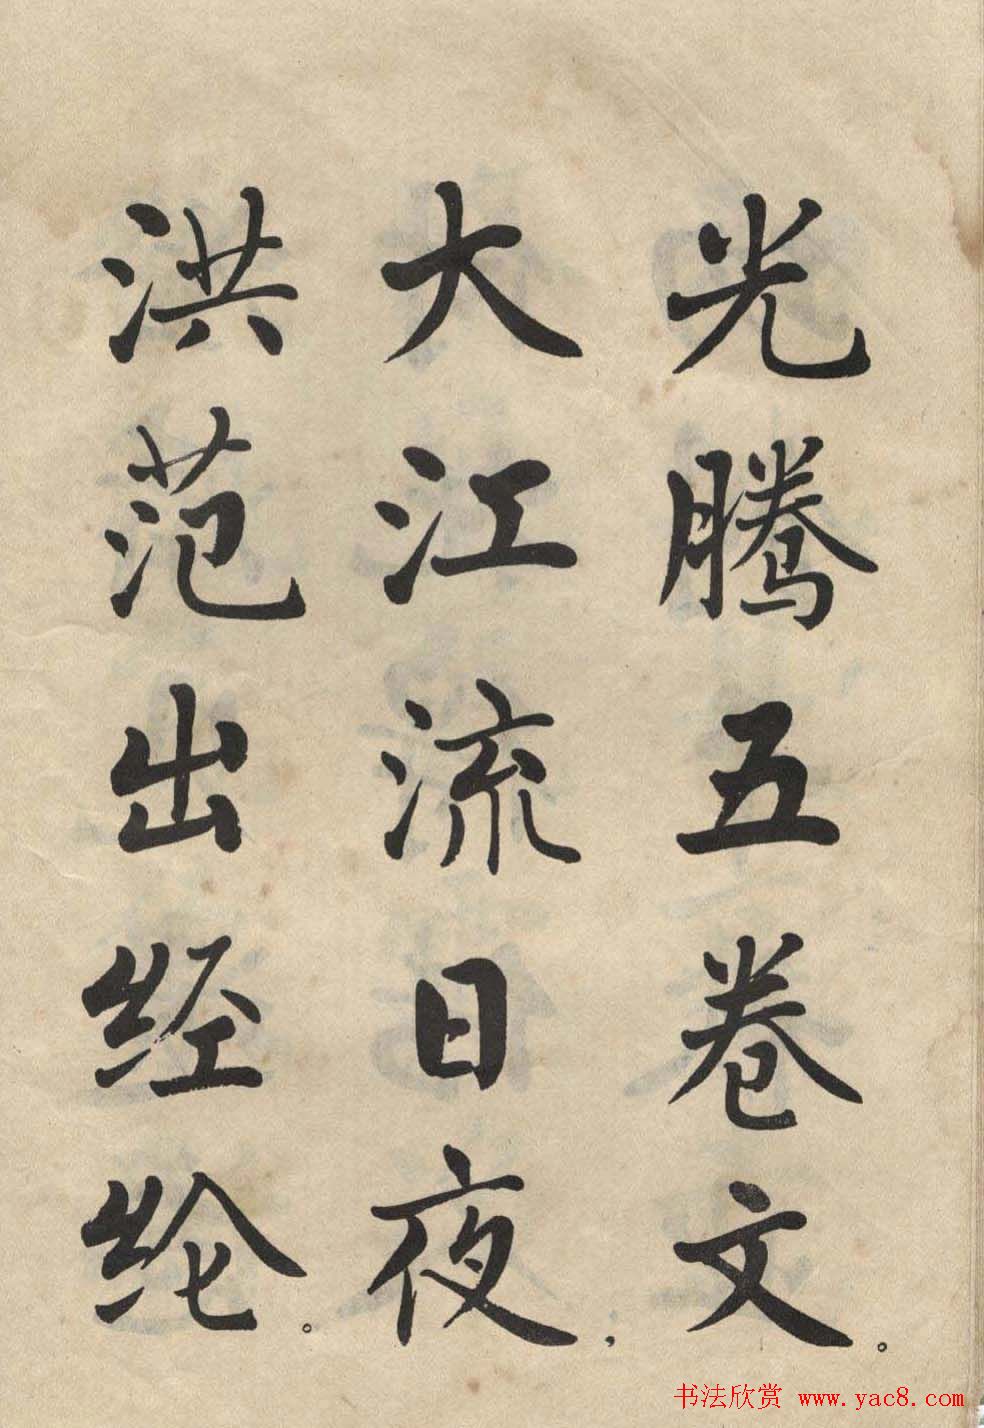 光腾五卷文。
大江流日夜，
洪范出经纶。
书法欣赏 www.yac8.com